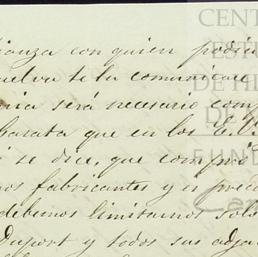 ianza con quien podria
uelva te lo comunicare
ria será necesario com
barata que en los E.
i se dice, que compró
nos fabricantes y es preci
debemos limitarnos solo
Duport y todos sus adju
CENT
EST
DE HI
DE
FUND